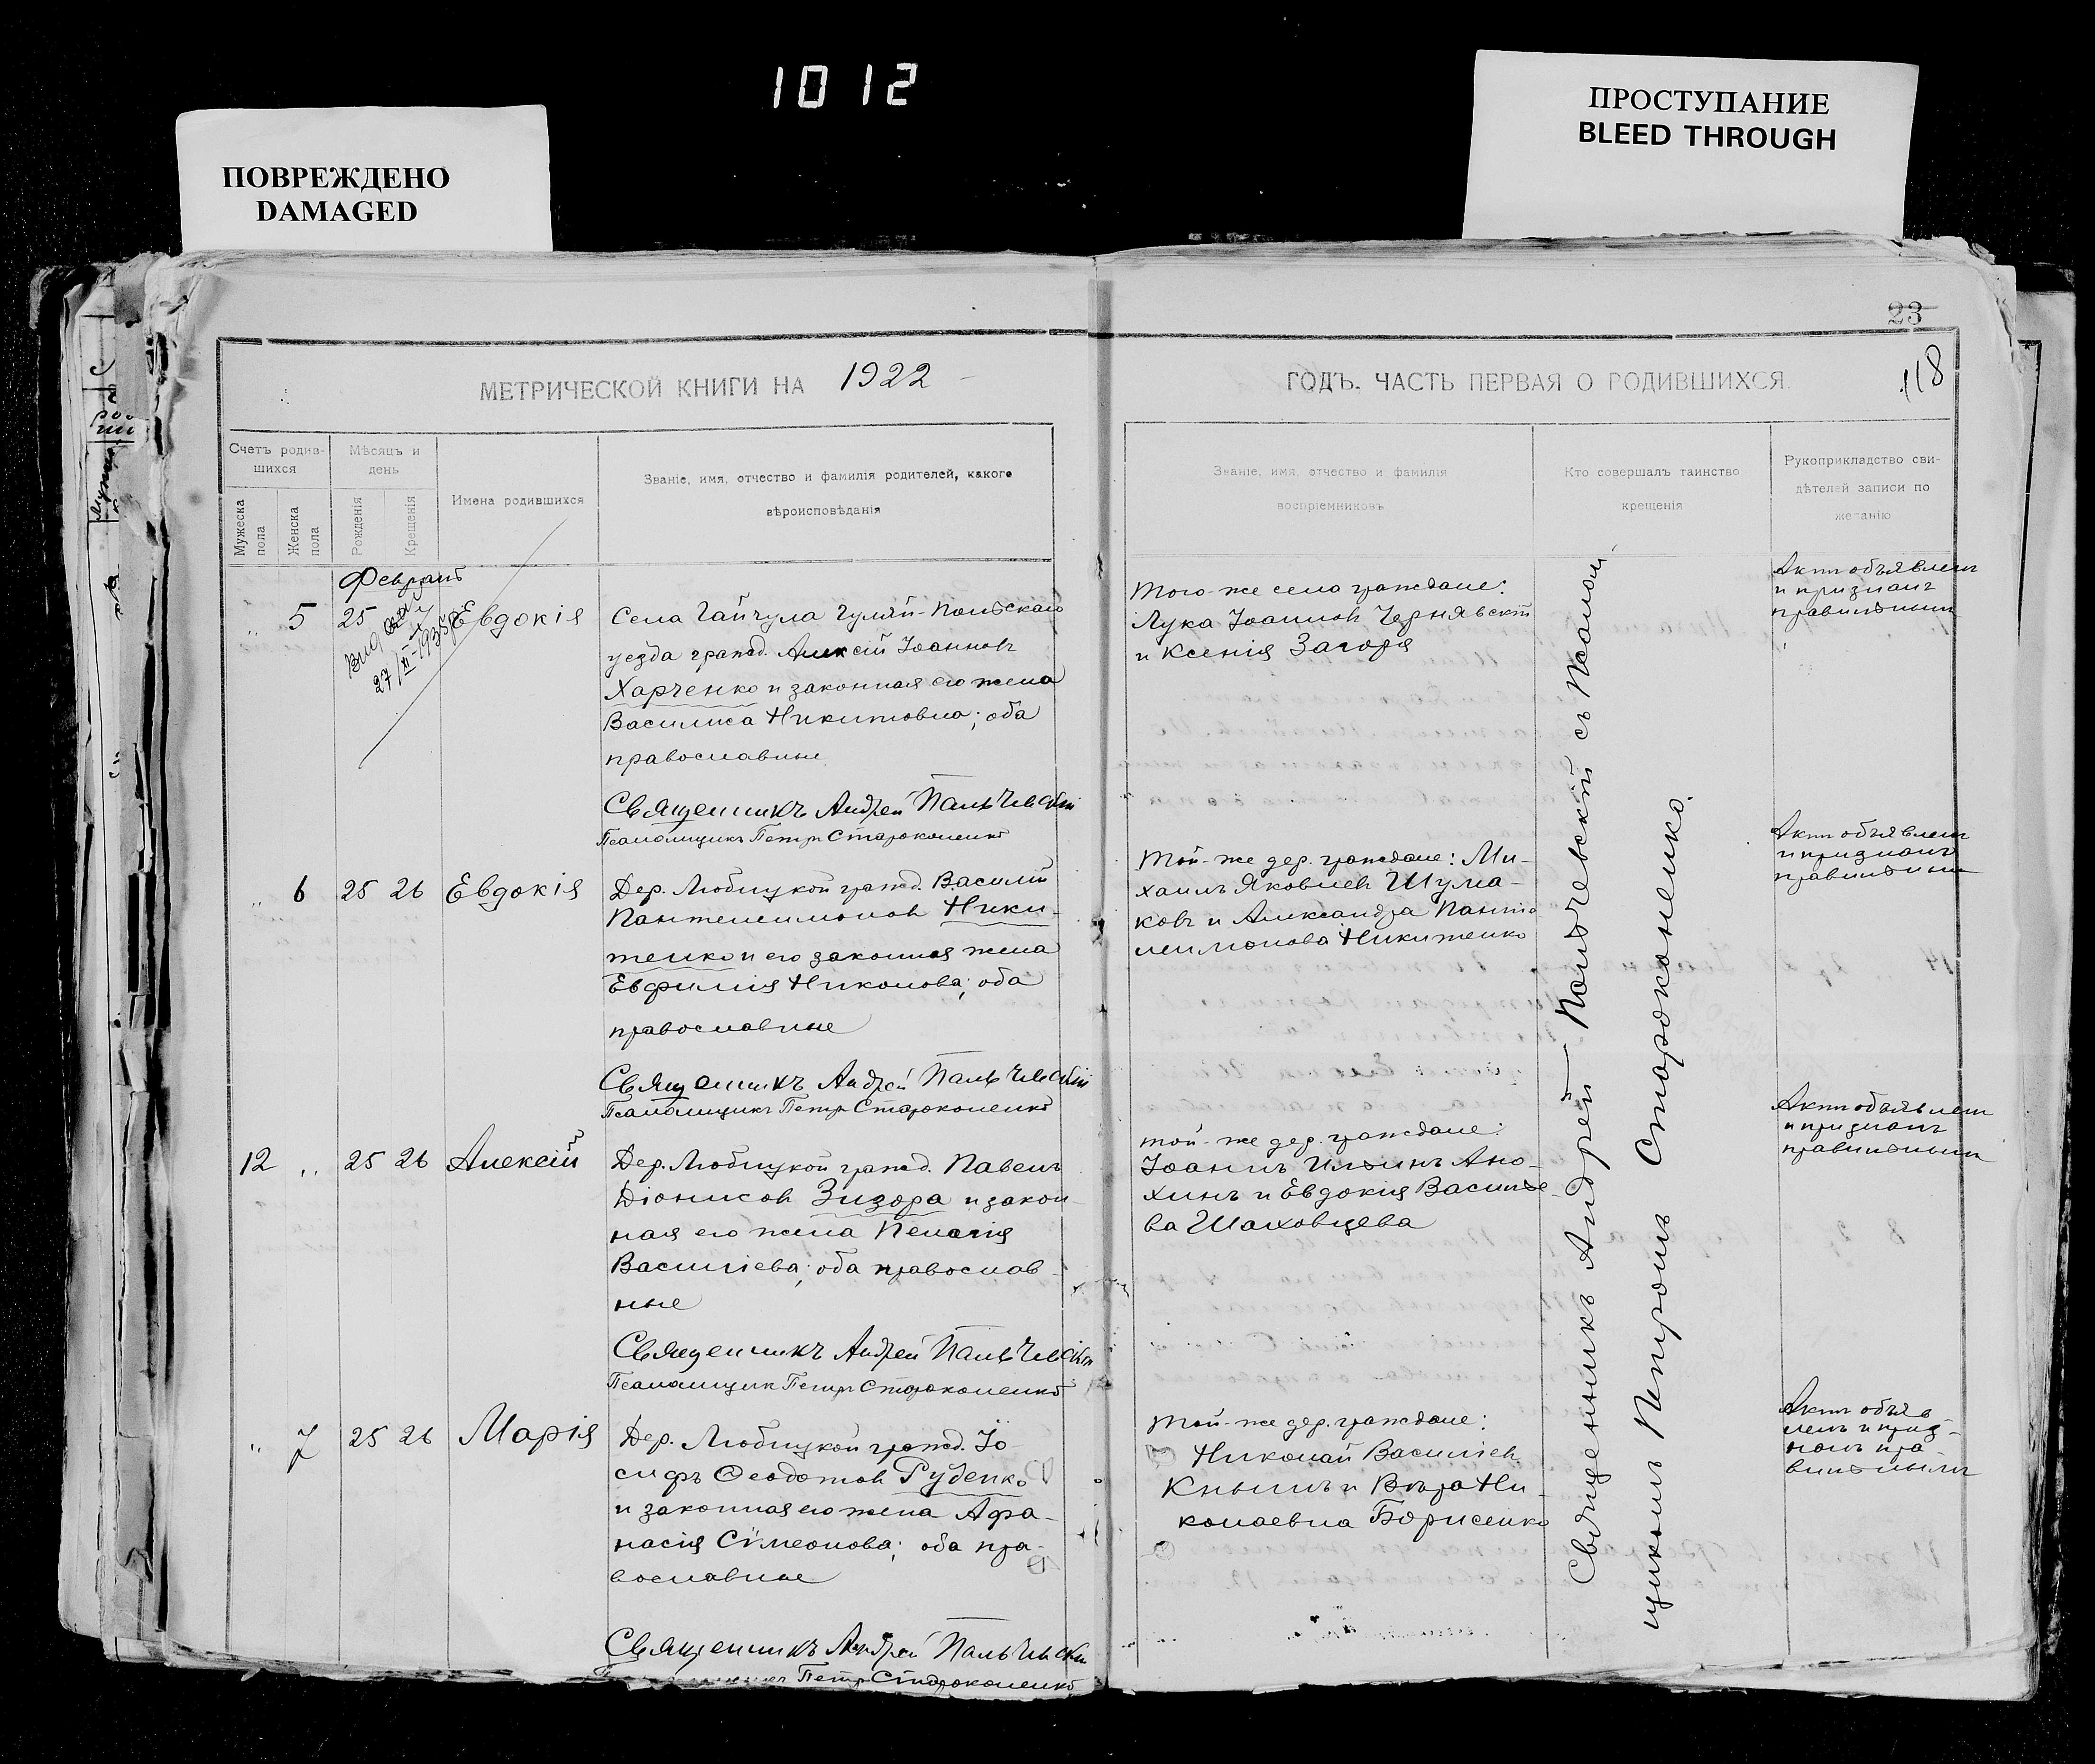 1012
ПОВРЕЖДЕНО
DAMAGED
ПРОСТУПАНИЕ
BLEED THROUGH
23
118
МЕТРИЧЕСКОЙ КНИГИ НА 1922
ГОДЪ. ЧАСТЬ ПЕРВАЯ О РОДИВШИХСЯ.
Счетъ родив-
шихся
Мужеска
пола
Женска
пола
Мѣсяцъ и
день
Рожденія
Крещенія
Имена родившихся
Званіе, имя, отчество и фамилія родителей, какого
вѣроисповѣданія
Званіе, имя, отчество и фамилія
воспріемниковъ
Кто совершалъ таинство
крещенія
Рукоприкладство сви-
дѣтелей записи по
желанію
Февраль
" 5 25 Евдокія
27/XI-1935
Села Гайчула Гуляй-Польскаго
уезда гражд. Алексій Іоанновъ
Харченко и законная его жена
Василиса Никитовна; оба
православные
Священникъ Андрей Пальчевскій
Псаломщикъ Петръ Староконенко
Того-же села граждане:
Лука Іоанновъ Чернявскій
и Ксенія Загоря
Актъ объявленъ
и признанъ
правильнымъ
" 6 25 26 Евдокія
Дер. Любицкой гражд. Василій
Пантелеимоновъ Ники-
тенко и его законная жена
Евфимія Никонова; оба
православные
Священникъ Андрей Пальчевскій
Псаломщикъ Петръ Староконенко
Той-же дер. граждане: Ми-
хаилъ Яковлевъ Шума-
ковъ и Александра Панте
леимонова Никитенко
Актъ объявленъ
и признанъ
правильнымъ
12 " 25 26 Алексій
Дер. Любицкой гражд. Павелъ
Діонисовъ Зизора и закон-
ная его жена Пелагія
Василіева; оба православ-
ные
Священникъ Андрей Пальчевскій
Псаломщикъ Петръ Староконенко
Той-же дер. граждане:
Іоаннъ Ильинъ Ано-
хинъ и Евдокія Василье-
ва Шаховцева
Актъ объявленъ
и признанъ
правильнымъ
" 7 25 26 Марія
Дер. Любицкой гражд. Іо-
сифъ Ѳеодотовъ Руденко
и законная его жена Афа-
насія Сѵмеонова; оба пра-
вославные
Священникъ Андрей Пальчевскій
Петръ Староконенко
Той-же дер. граждане:
Николай Василіевъ
Кнышъ и Вѣра Ни-
колаевна Борисенко
Актъ объяв-
ленъ и приз-
нанъ пра-
вильнымъ
Священникъ Андрей Пальчевскій съ Псалом-
щикомъ Петромъ Староконенко.